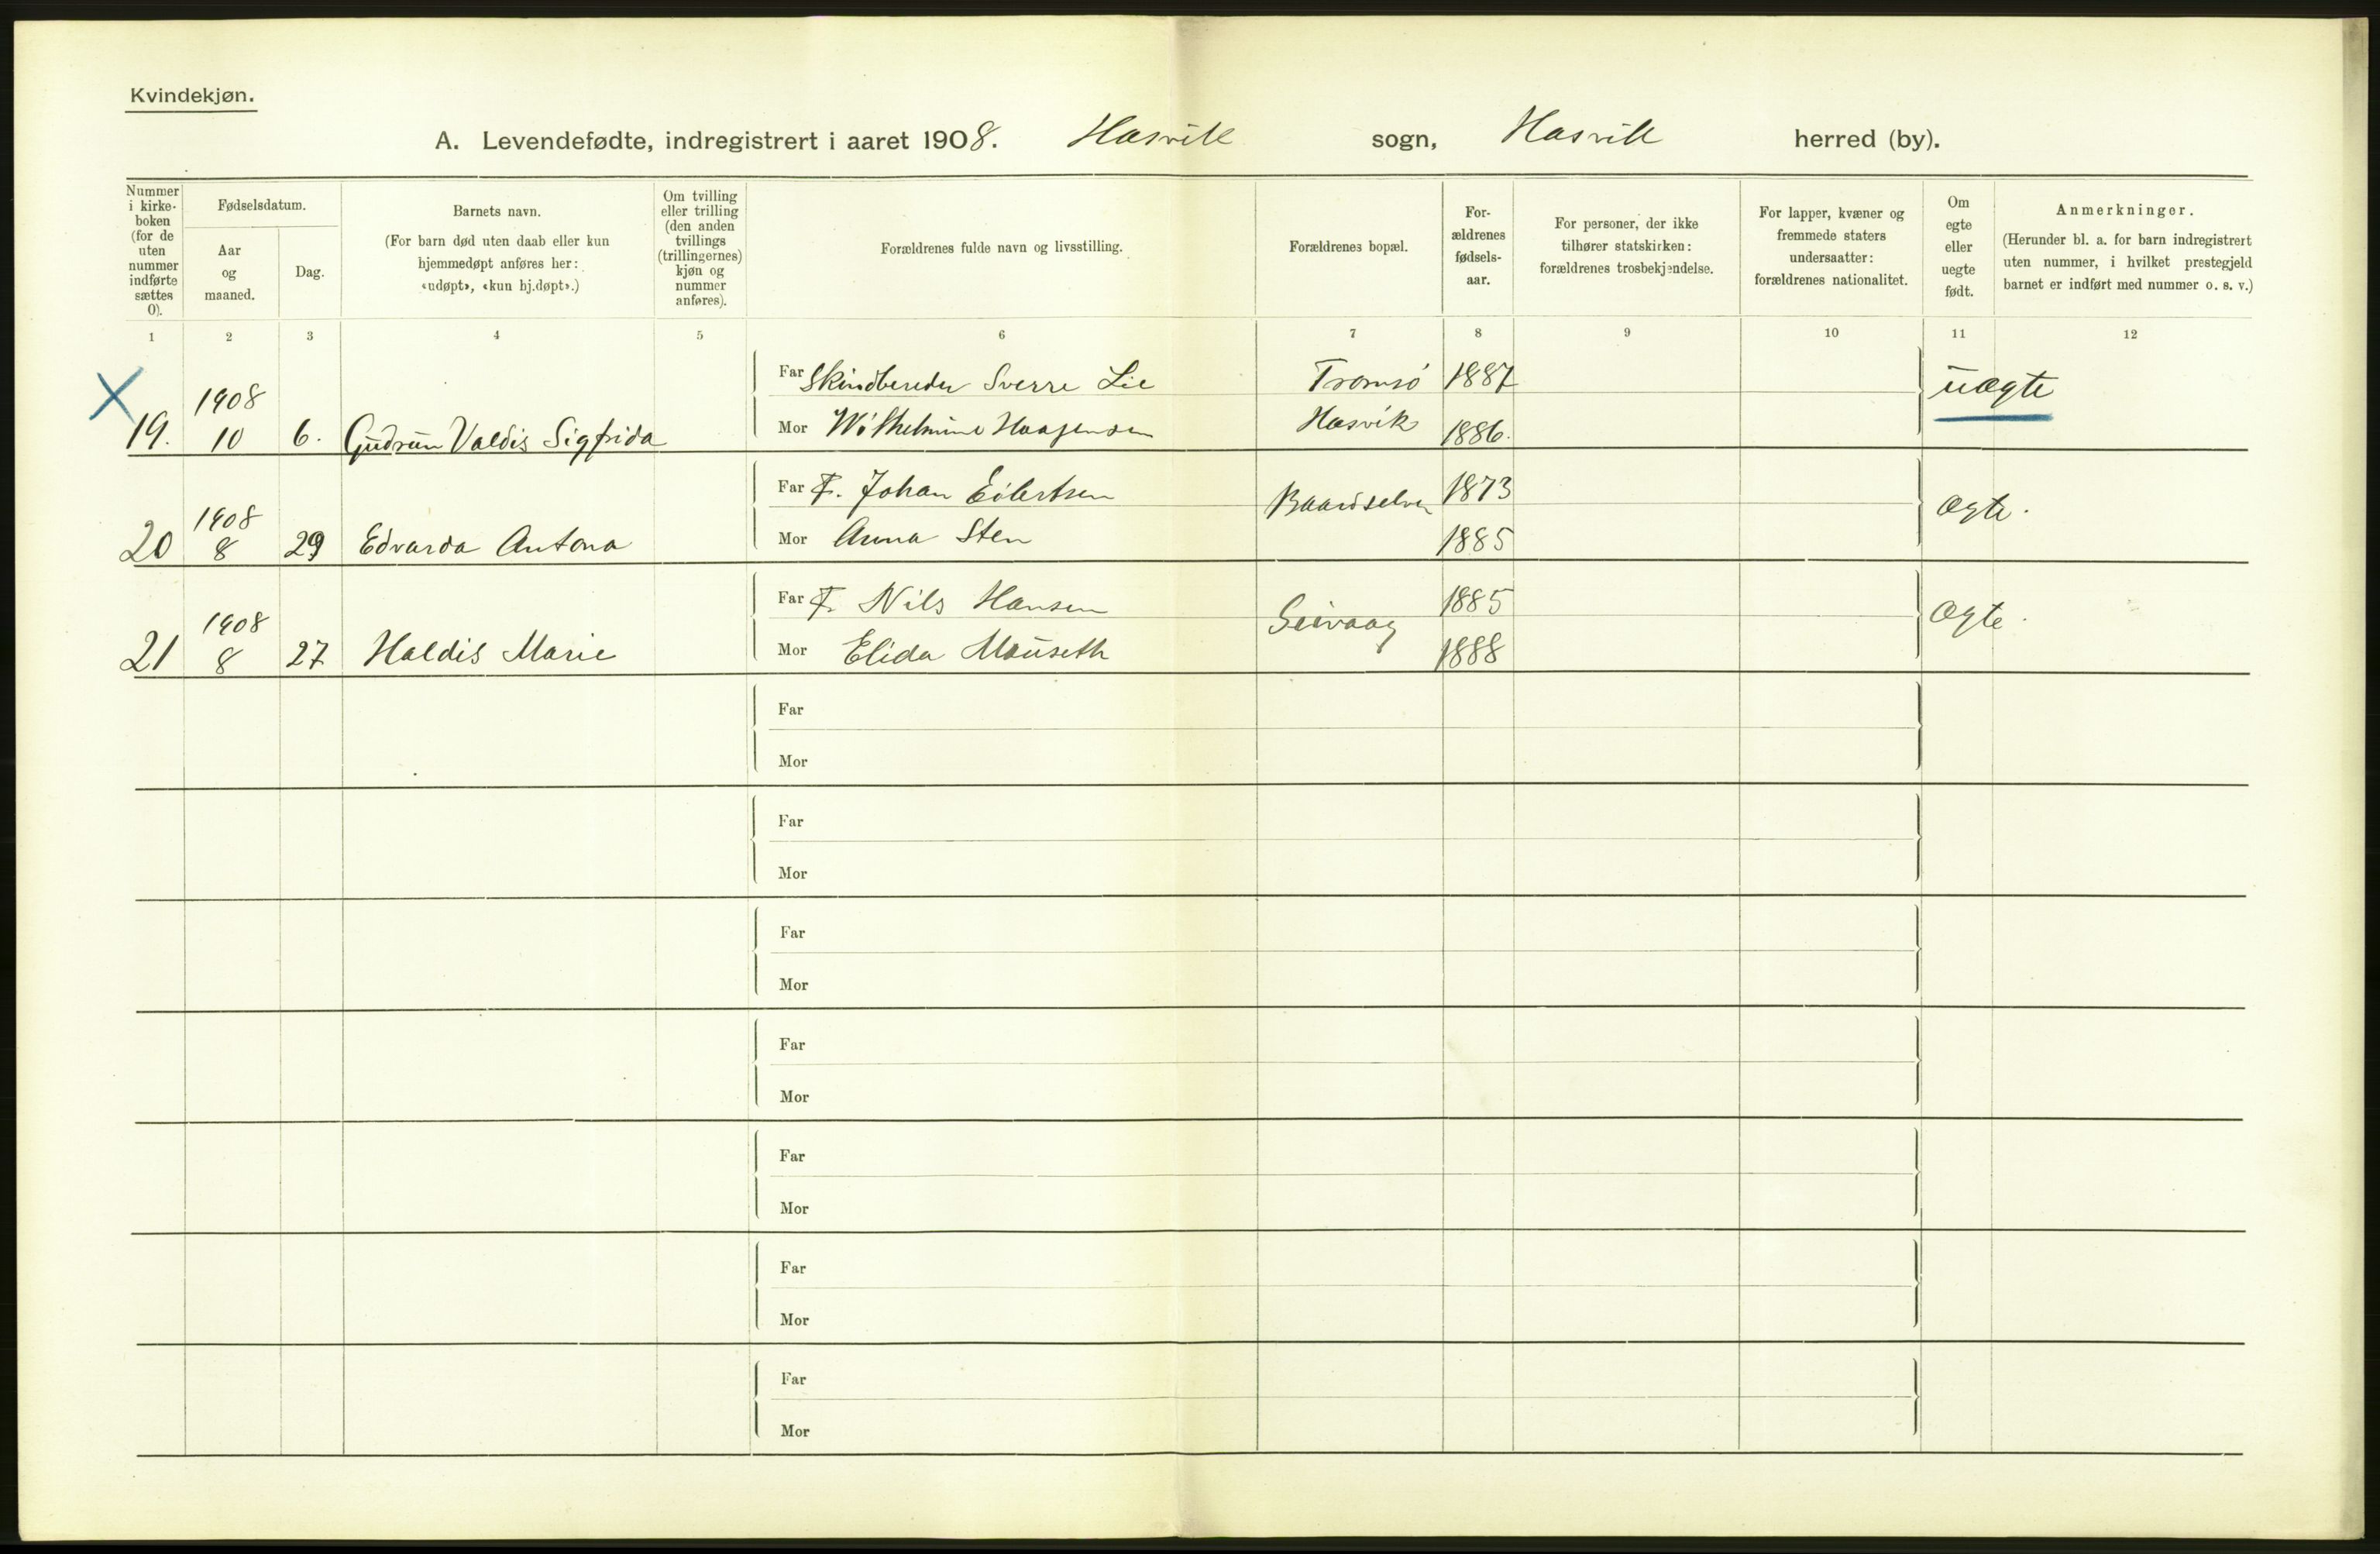 Kvindekjøn.
A. Levendefødte, indregistrert i aaret 1908. Hasvik sogn, Hasvik herred (by).
Nummer i kirke-boken (for de uten nummer indførte sættes 0).
Fødselsdatum.
Aar og maaned.
Dag.
Barnets navn.
(For barn død uten daab eller kun hjemmedøpt anføres her: «udøpt», «kun hj.døpt».)
Om tvilling eller trilling (den anden tvillings (trillingernes) kjøn og nummer anføres).
Forældrenes fulde navn og livsstilling.
Forældrenes bopæl.
For-ældrenes fødsels-aar.
For personer, der ikke tilhører statskirken: forældrenes trosbekjendelse.
For lapper, kvæner og fremmede staters undersaatter: forældrenes nationalitet.
Om egte eller uegte født.
Anmerkninger.
(Herunder bl. a. for barn indregistrert uten nummer, i hvilket prestegjeld barnet er indført med nummer o. s. v.)
1 2 3 4 5 6 7 8 9 10 11 12
Far Skindbereder Sverre Lie Tromsø 1887 uægte
X 19. 1908 10 6. Gudrun Valdis Sigfrida Mor Wilhelmine Haagensen Hasvik 1886.
Far F. Johan Eilertsen Baardselven 1873 ægte.
20 1908 8 29 Edvarda Antona Mor Anna Sten 1885
Far F. Nils Hansen Seivaag 1885 ægte.
21 1908 8 27 Haldis Marie Mor Elida Mauseth 1888
Far
Mor
Far
Mor
Far
Mor
Far
Mor
Far
Mor
Far
Mor
Far
Mor